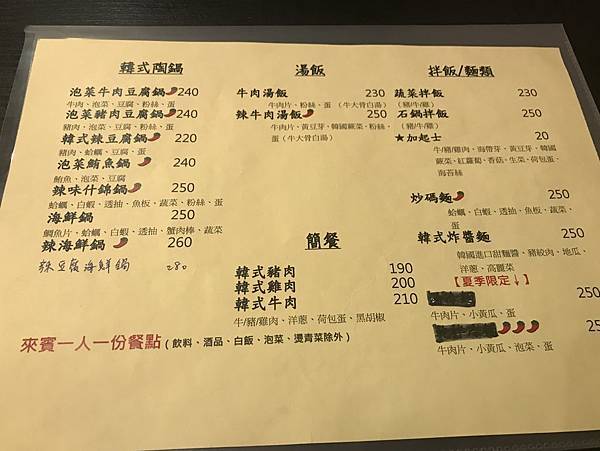 韓式陶鍋
泡菜牛肉豆腐鍋 240
牛肉、泡菜、豆腐、粉絲、蛋
泡菜豬肉豆腐鍋 240
豬肉、泡菜、豆腐、粉絲、蛋
韓式辣豆腐鍋 220
豬肉、蛤蠣、豆腐、蛋
泡菜鮪魚鍋 240
鮪魚、泡菜、豆腐
辣味什錦鍋 250
蛤蠣、白蝦、透抽、魚板、蔬菜、粉絲、蛋
海鮮鍋 250
鯛魚片、蛤蠣、白蝦、透抽、蟹肉棒、蔬菜
辣海鮮鍋 260
辣豆腐海鮮鍋 280
來賓一人一份餐點(飲料、酒品、白飯、泡菜、燙青菜除外)
湯飯
牛肉湯飯 230
牛肉片、粉絲、蔥(牛大骨白湯)
辣牛肉湯飯 250
牛肉片、黃豆芽、韓國蕨菜、粉絲、
蛋(牛大骨白湯)
簡餐
韓式豬肉 190
韓式雞肉 200
韓式牛肉 210
牛/豬/雞肉、洋蔥、荷包蛋、黑胡椒
拌飯/麵類
蔬菜拌飯 230
(豬/牛/雞)
石鍋拌飯 250
(豬/牛/雞)
★加起士 20
牛/豬/雞肉、海帶芽、黃豆芽、韓國
蕨菜、紅蘿蔔、香菇、生菜、荷包蛋、
海苔絲
炒碼麵 250
蛤蠣、白蝦、透抽、魚板、蔬菜、
蛋
韓式炸醬麵 250
韓國進口甜麵醬、豬絞肉、地瓜、
洋蔥、高麗菜
【夏季限定↓】
250
牛肉片、小黃瓜、蛋
牛肉片、小黃瓜、泡菜、蛋